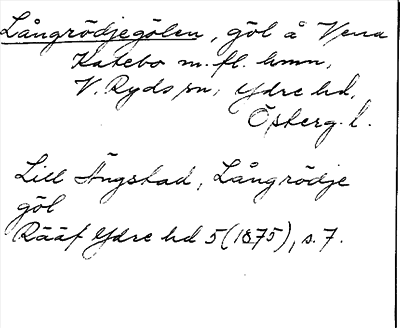 Långrödjegölen, göl å Vena
Katebo m. fl. hmn,
V. Ryds sn, Ydre hd,
Österg. l.
Lill Ängstad, Långrödje
göl
Rääf Ydre hd 5 (1875), s. 7.